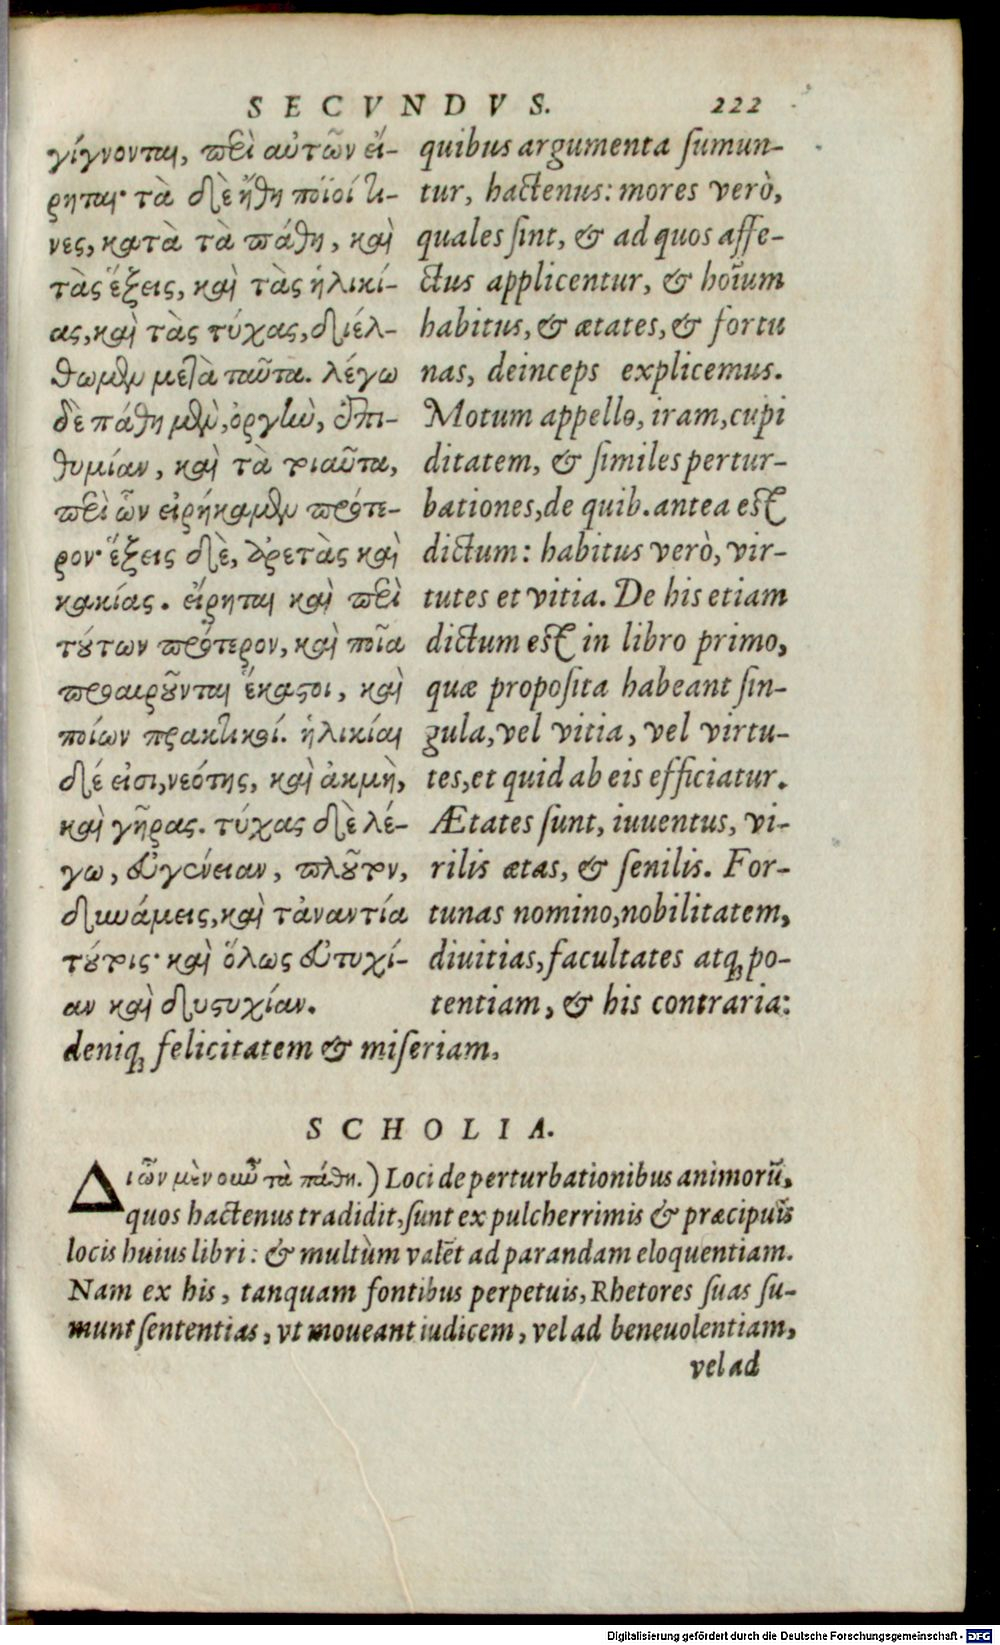 SECVNDVS. 222
γίγνονται, περὶ αὐτῶν εἴ-
ρηται· τὰ δὲ ἤθη ποῖοί τι-
νες, κατὰ τὰ πάθη, καὶ
τὰς ἕξεις, καὶ τὰς ἡλικί-
ας, καὶ τὰς τύχας, διέλ-
θωμεν μετὰ ταῦτα. λέγω
δὲ πάθη μὲν, ὀργὴν, ἐπι-
θυμίαν, καὶ τὰ τοιαῦτα,
περὶ ὧν εἰρήκαμεν πρότε-
ρον· ἕξεις δὲ, ἀρετὰς καὶ
κακίας. εἴρηται καὶ περὶ
τούτων πρότερον, καὶ ποῖα
προαιροῦνται ἕκαστοι, καὶ
ποίων πρακτικοί. ἡλικίαι
δέ εἰσι, νεότης, καὶ ἀκμὴ,
καὶ γῆρας. τύχας δὲ λέ-
γω, εὐγένειαν, πλοῦτον,
δυνάμεις, καὶ τἀναντία
τούτοις· καὶ ὅλως εὐτυχί-
αν καὶ δυστυχίαν.
quibus argumenta ſumun-
tur, hactenus: mores verò,
quales ſint, & ad quos affe-
ctus applicentur, & hoīum
habitus, & ætates, & fortu
nas, deinceps explicemus.
Motum appello, iram, cupi
ditatem, & ſimiles pertur-
bationes, de quib. antea eſt
dictum: habitus verò, vir-
tutes et vitia. De his etiam
dictum eſt in libro primo,
quæ propoſita habeant ſin-
gula, vel vitia, vel virtu-
tes, et quid ab eis efficiatur.
Ætates ſunt, iuuentus, vi-
rilis ætas, & ſenilis. For-
tunas nomino, nobilitatem,
diuitias, facultates atq; po-
tentiam, & his contraria:
deniq; felicitatem & miſeriam.
SCHOLIA.
Δι ὧν μὲν οὖν τὰ πάθη.) Loci de perturbationibus animorū,
quos hactenus tradidit, ſunt ex pulcherrimis & præcipuis
locis huius libri: & multùm valēt ad parandam eloquentiam.
Nam ex his, tanquam fontibus perpetuis, Rhetores ſuas ſu-
munt ſententias, vt moueant iudicem, vel ad beneuolentiam,
vel ad
Digitalisierung gefördert durch die Deutsche Forschungsgemeinschaft - DFG